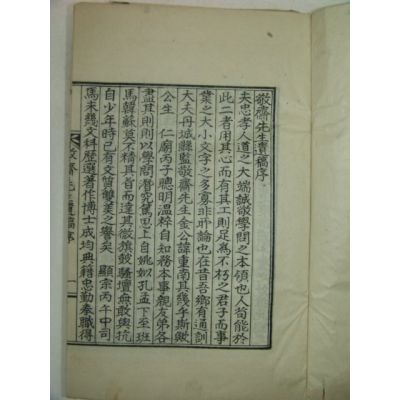 敬齋先生遺稿序
夫忠孝人道之大端誠敬學問之本領也人苟能於
此二者用其心而有其工則足爲不朽之君子而事
業之大小文字之多寡非所論也在昔吾鄉有通訓
大夫丹城縣監敬齋先生金公諱重南其幾乎斯歟
公生 仁廟丙子聰明溫粹自知務本事親友弟各
盡其則則以學問潛究篤思上自姚姒孔孟下至班
馬韓蘇莫不精其旨而達其微旗鼓騷壇無敢與抗
自少年時已有文質雙美之譽矣 顯宗丙午中司
馬未幾文科歷選著作博士成均典籍忠勤奉職得
敬齋先生遺稿序 一